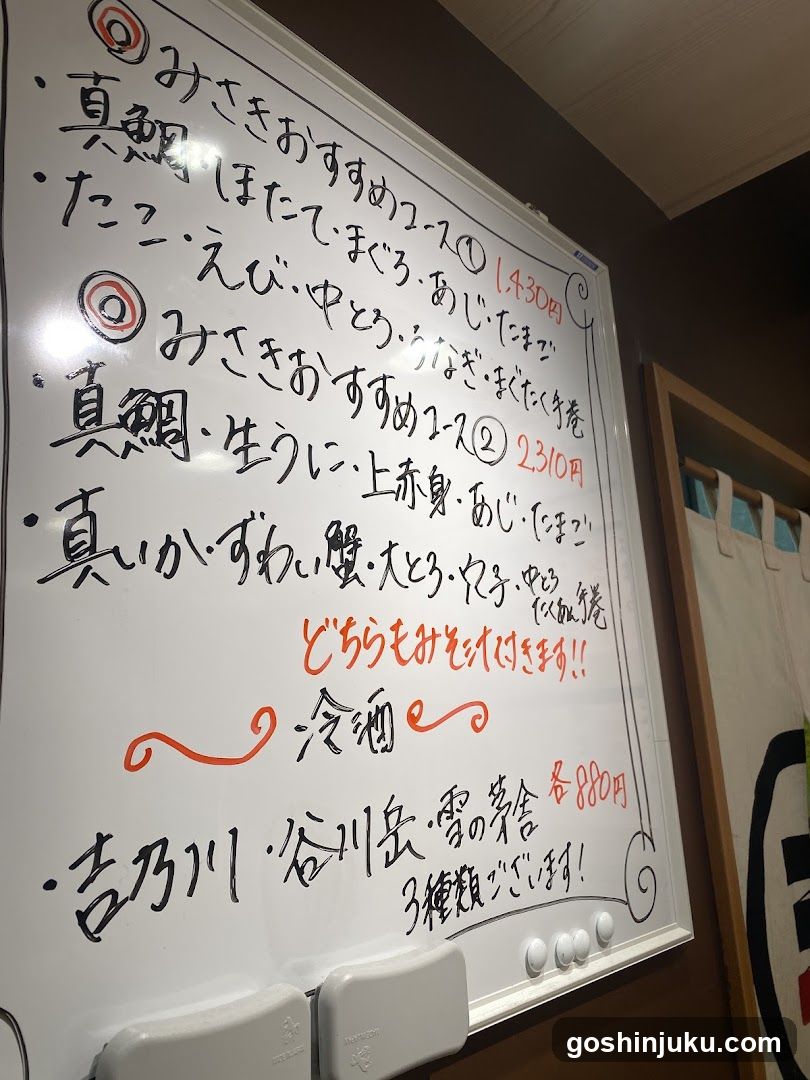 みさきおすすめコース① 1,430円
・真鯛・ほたて・まぐろ・あじ・たまご
・たこ・えび・中とろ・うなぎ・まぐたく手巻
みさきおすすめコース② 2,310円
・真鯛・生うに・上赤身・あじ・たまご
・真いか・ずわい蟹・大とろ・穴子・中とろたくあん手巻
どちらもみそ汁付きます!!
冷酒
各880円
・吉乃川・谷川岳・雪の茅舎
3種類ございます!
goshinjuku.com